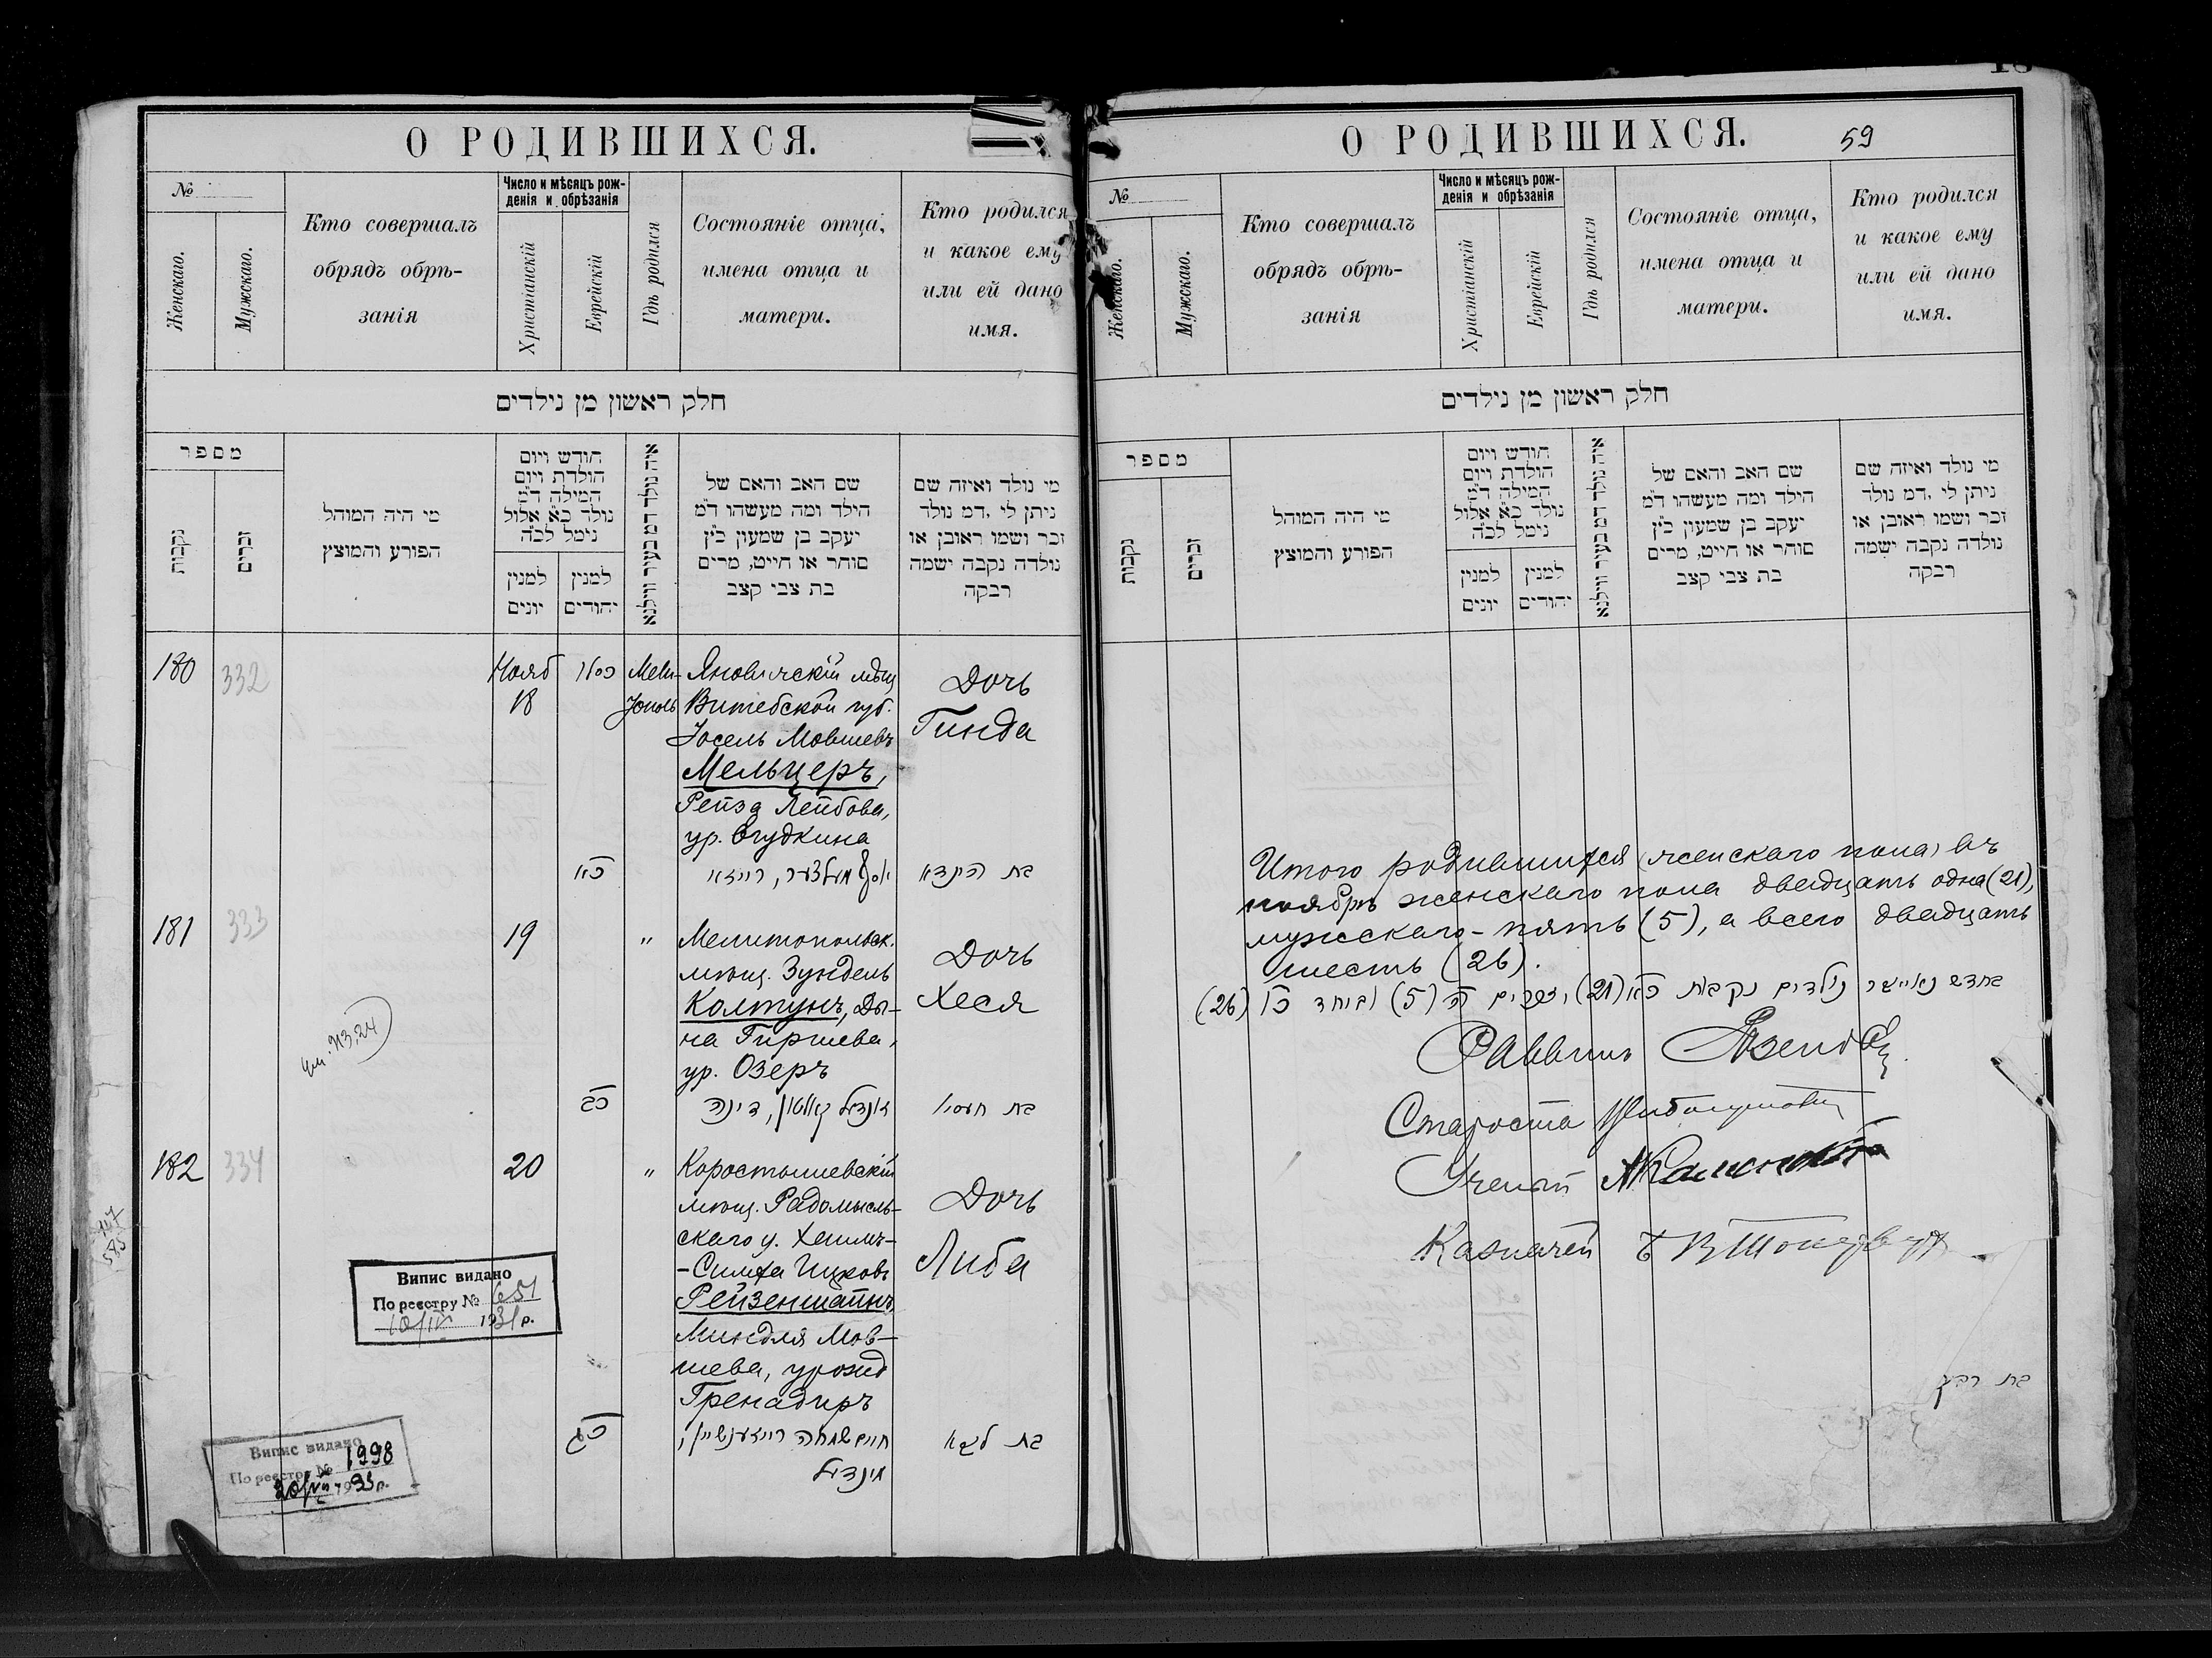 О РОДИВШИХСЯ.
№
Женскаго.
Мужскаго.
Кто совершалъ
обрядъ обрѣ-
занія
Число и мѣсяцъ рож-
денія и обрѣзанія
Христіанскій
Еврейскій
Гдѣ родился
Состояніе отца,
имена отца и
матери.
Кто родился
и какое ему
или ей дано
имя.
חלק ראשון מן נילדים
מספר
נקבות
זכרים
מי היה המוהל
הפורע והמוצץ
חודש ויום
הולדת ויום
המילה ד״מ
נולד כ״א אלול
נימל לכ״ה
למנין
יונים
למנין
יהודים
איה נולד דמ בעיר ווילנא
שם האב והאם של
הילד ומה מעשהו ד״מ
יעקב בן שמעון כ״ץ
סוחר או חייט, מרים
בת צבי קצב
מי נולד ואיזה שם
ניתן לי ,דמ נולד
זכר ושמו ראובן או
נולדה נקבה ישמה
רבקה
180
332
Нояб
18
כסלו
Мели-
тополь
Яновичскій мѣщ
Витебской губ.
Іосель Мовшевъ
Мельцеръ,
Рейза Лейбова,
ур.
Дочь
Гинда
כא
יוסף מעלצער, רייזא
בת הינדא
181
333
19
"
Мелитопольск.
мѣщ. Зундель
Колтунъ, Ды-
на Гиршева,
ур. Озеръ
Дочь
Хеся
כב
זונדיל קאלטון, דינה
בת חעסיא
182
334
20
"
Коростышевскій
мѣщ. Радомысль-
скаго у. Хаимъ-
-Симха Ицковъ
Рейзенштейнъ,
Миндля Мов-
шева, урожд
Гренадиръ
Дочь
Либа
כג
חיים שמחה רייזענשטיין,
מינדיל
בת ליבא
Випис видано
По реєстру № 651
10/IV 1931 р.
Випис видано
По реєстру № 1998
20/VII 1935 р.
О РОДИВШИХСЯ.
59
№
Женскаго.
Мужскаго.
Кто совершалъ
обрядъ обрѣ-
занія
Число и мѣсяцъ рож-
денія и обрѣзанія
Христіанскій
Еврейскій
Гдѣ родился
Состояніе отца,
имена отца и
матери.
Кто родился
и какое ему
или ей дано
имя.
חלק ראשון מן נילדים
מספר
נקבות
זכרים
מי היה המוהל
הפורע והמוצץ
חודש ויום
הולדת ויום
המילה ד״מ
נולד כ״א אלול
נימל לכ״ה
למנין
יונים
למנין
יהודים
איה נולד דמ בעיר ווילנא
שם האב והאם של
הילד ומה מעשהו ד״מ
יעקב בן שמעון כ״ץ
סוחר או חייט, מרים
בת צבי קצב
מי נולד ואיזה שם
ניתן לי ,דמ נולד
זכר ושמו ראובן או
נולדה נקבה ישמה
רבקה
Итого родившихся (женскаго пола) въ
ноябрѣ женскаго пола двадцать одна (21),
мужскаго - пять (5), а всего двадцать
шесть (26).
בחדש נאיאבר נולדים נקבות כא (21) וזכרים ה (5) וביחד כו (26)
Раввинъ
Староста
Ученый
Казначей